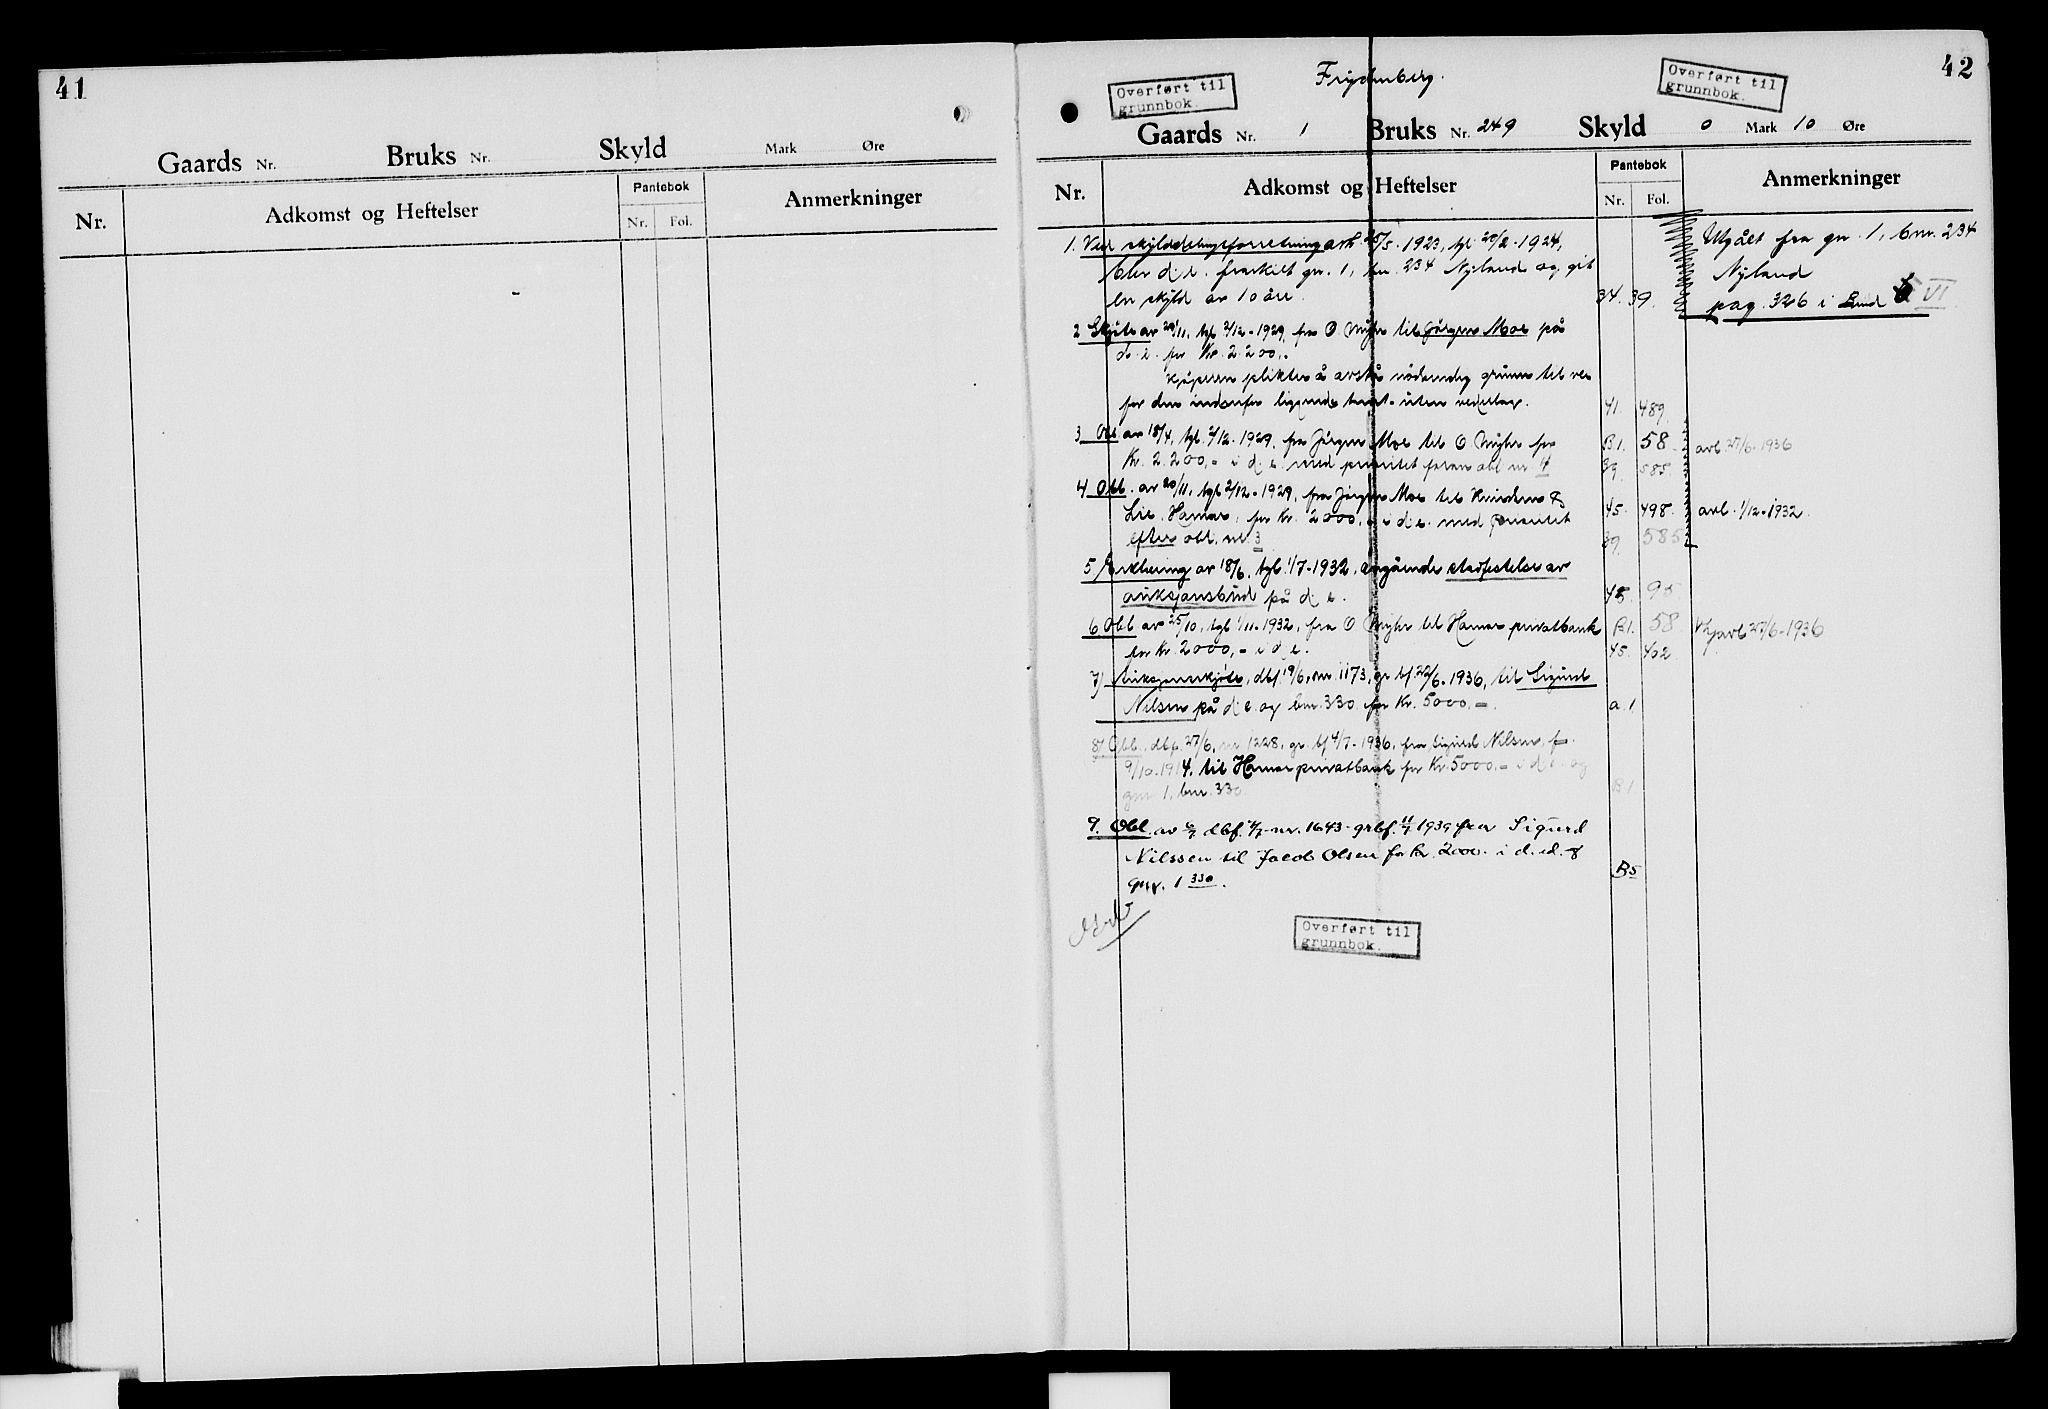 41
Gaards Nr. Bruks Nr. Skyld Mark Øre
Nr. Adkomst og Heftelser Pantebok Anmerkninger
Nr. Fol.
42
Overført til
grunnbok.
Frydenberg.
Overført til
grunnbok.
Gaards Nr. 1 Bruks Nr. 249 Skyld 0 Mark 10 Øre
Nr. Adkomst og Heftelser Pantebok Anmerkninger
Nr. Fol.
1. Ved skylddelingsforretning avh. 25/5-1923, tgl. 20/2-1924,
blev d. e. fraskilt gnr. 1, bnr. 234 Nyland og git
en skyld av 10 øre. 34. 39.
Utgået fra gnr. 1, bnr. 234
Nyland
pag. 326 i Bind VI
2 Skjøte av 20/11, tgl. 2/12-1929, fra O Myhr til Jørgen Moe på
d. e. for Kr. 2.200,-
Kjøperen plikter å avstå nødvendig grunn til vei
for den indenfor liggende tomt uten vederlag. 41. 489.
3 Obl av 18/4, tgl. 2/12-1929, fra Jørgen Moe til O Myhr for B.1. 58 avl. 27/6-1936
Kr. 2.200,- i d. e. med prioritet foran obl nr 4 39. 585.
4 Obl. av 20/11, tgl 2/12-1929, fra Jørgen Moe til &
Lie, Hamar, for Kr. 2000,- i d. e. med prioritet 45. 498. avl. 1/12-1932.
efter obl. nr. 3 39. 585
5 Erklæring av 18/6, tgl. 1/7-1932, angående stadfestelse av
auksjonsbud på d. e. 48. 95
6 Obl av 25/10, tgl 1/11-1932, fra O Myhr til Hamar privatbank B1. 58 avl 27/6-1936
for Kr. 2000,- i d. e. 45. 402
7) Auksjonsskjøte, dbf. 19/6, nr. 1173, gr. bf. 22/6-1936, til Sigurd
Nilsen på d. e. og bnr. 330 for Kr. 5000,- a. 1
8) Obl., dbf. 27/6, nr. 1228, gr. bf 4/7-1936, fra Sigurd Nilsen, f.
9/10-1914, til Hamar privatbank for Kr. 5000,- i d. e. og
gnr 1, bnr. 330 B 1
9. Obl. av 6/7 dbf. 7/7 nr. 1643 grbf. 11/7 1939 fra Sigurd
Nilssen til Jacob Olsen for kr. 2000.- i d. ed. &
gnr. 1 330. B5
Overført til
grunnbok.